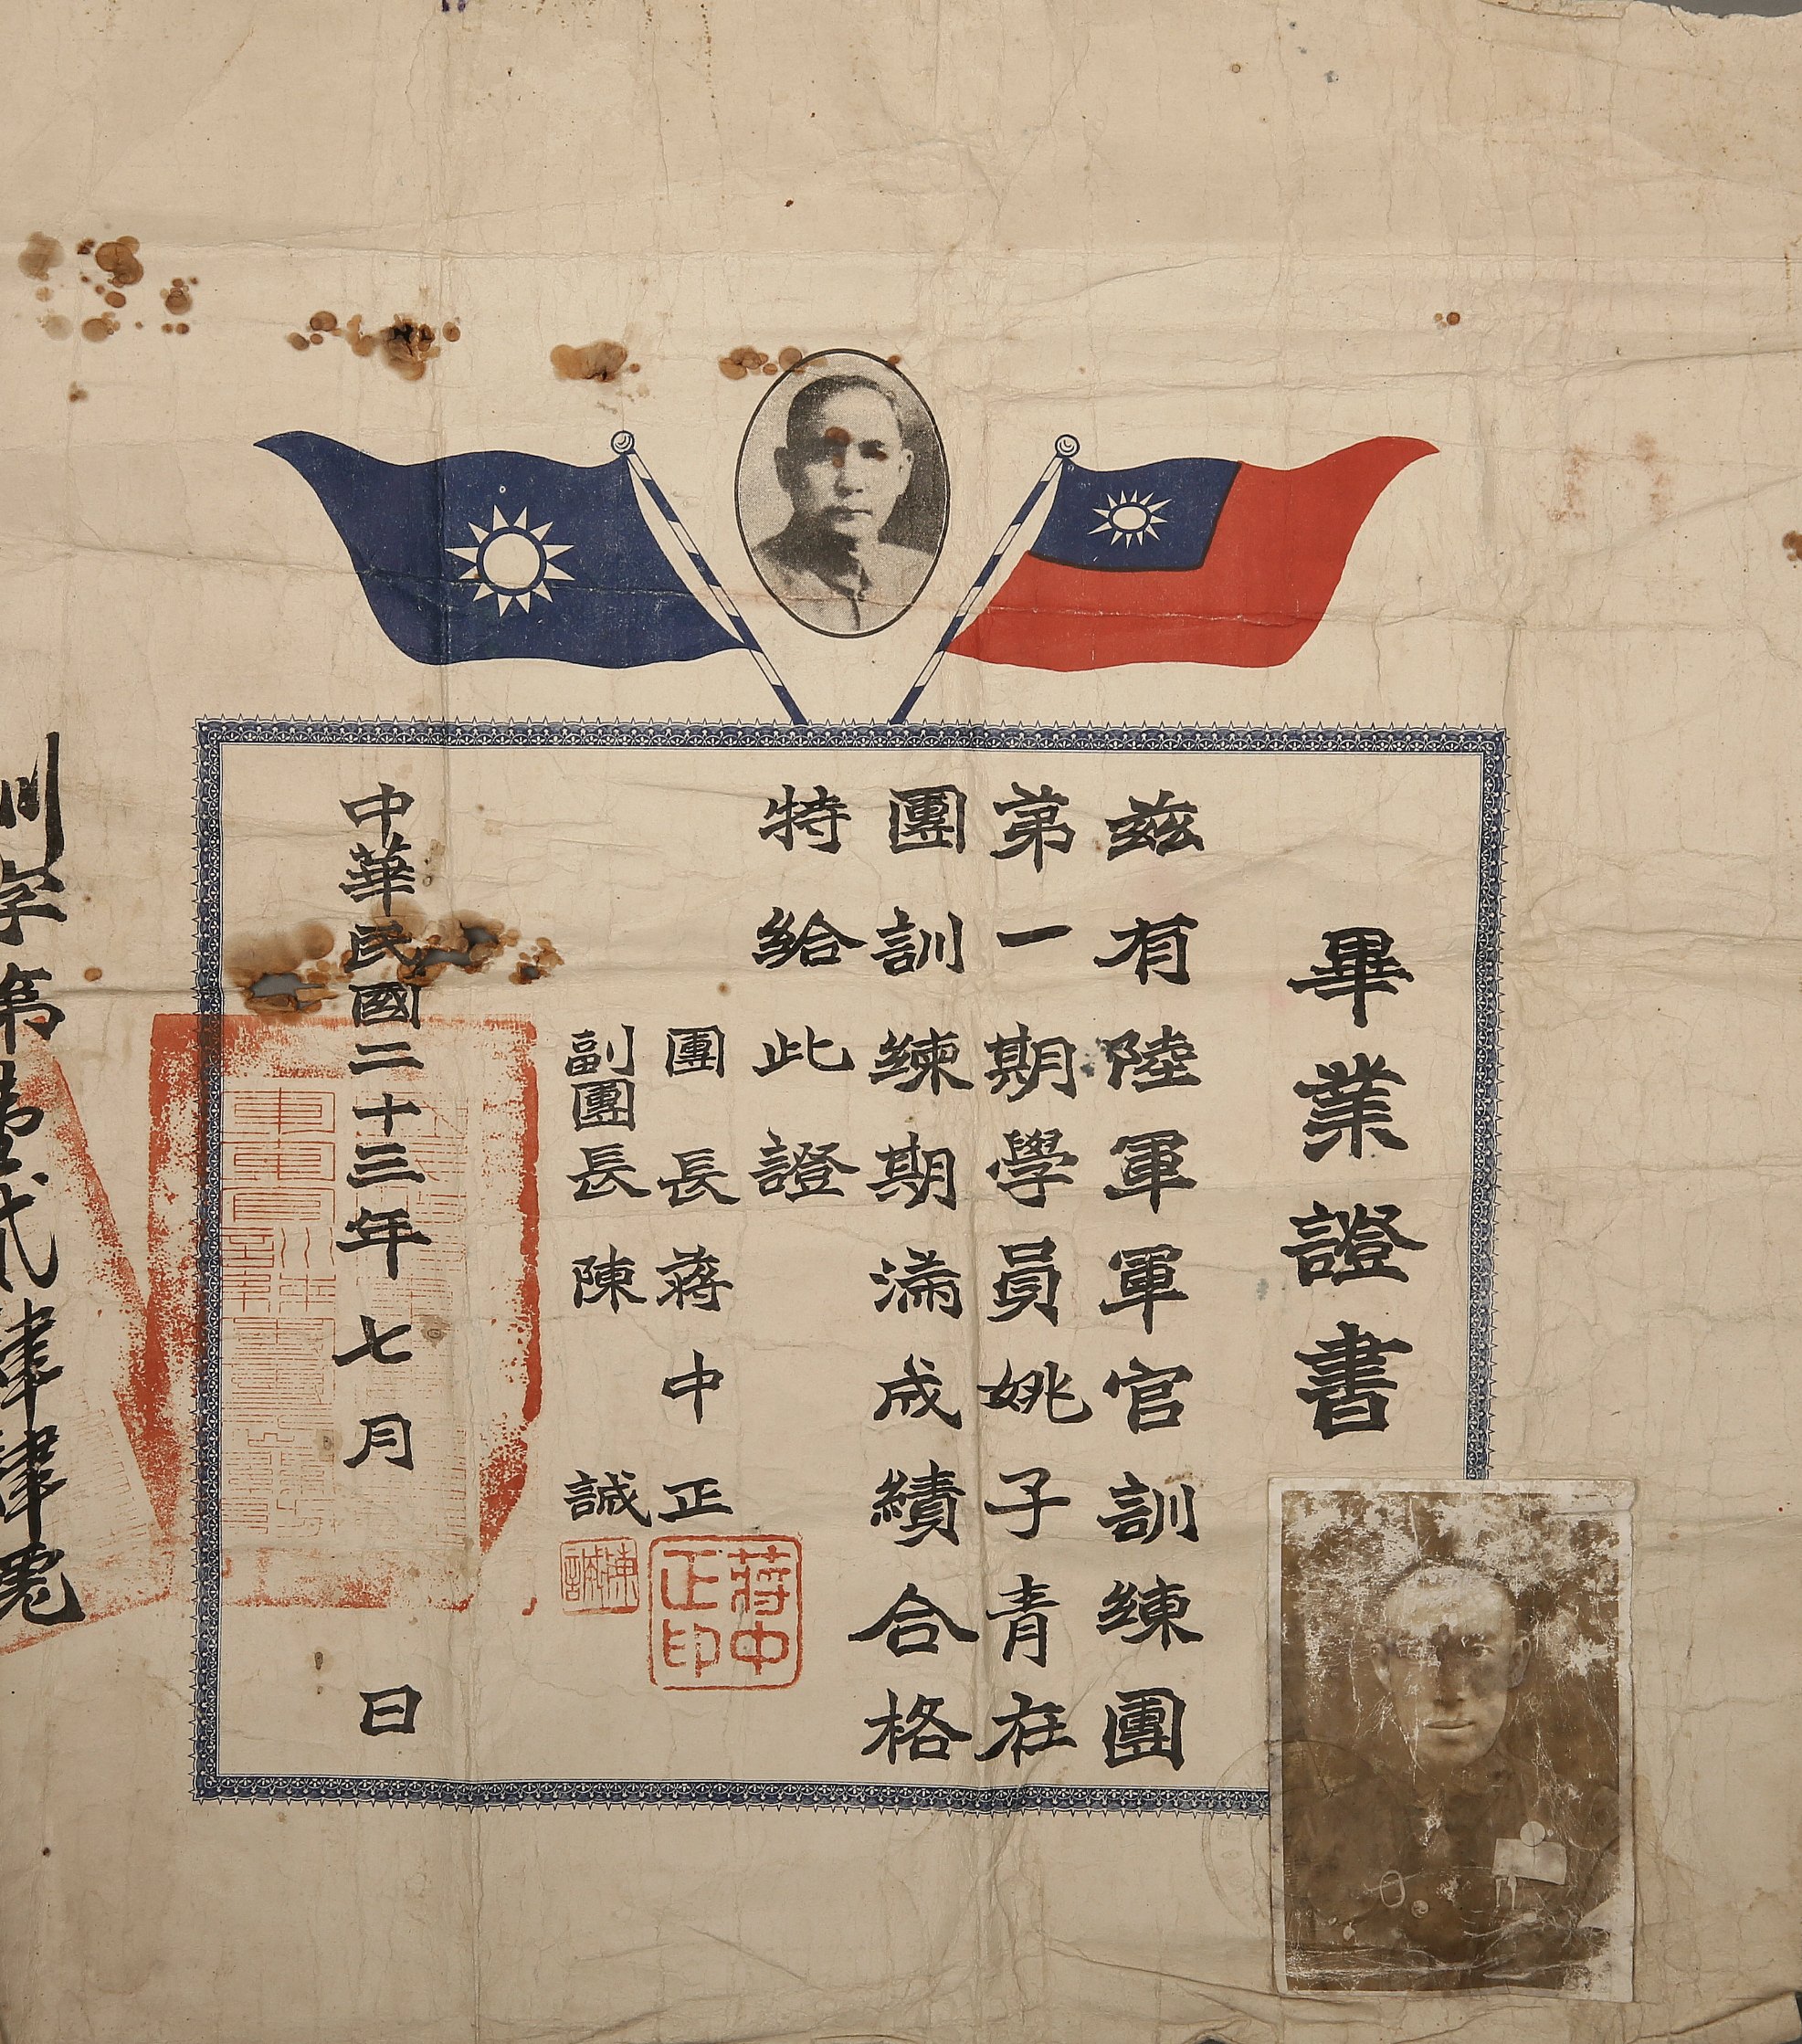 畢業證書
茲有陸軍軍官訓練團
第一期學員姚子青在
團訓練期滿成績合格
特給此證
團長蔣中正
蔣中正印
副團長陳誠
陳誠
中華民國二十三年七月 日
訓字第壹貳肆肆號